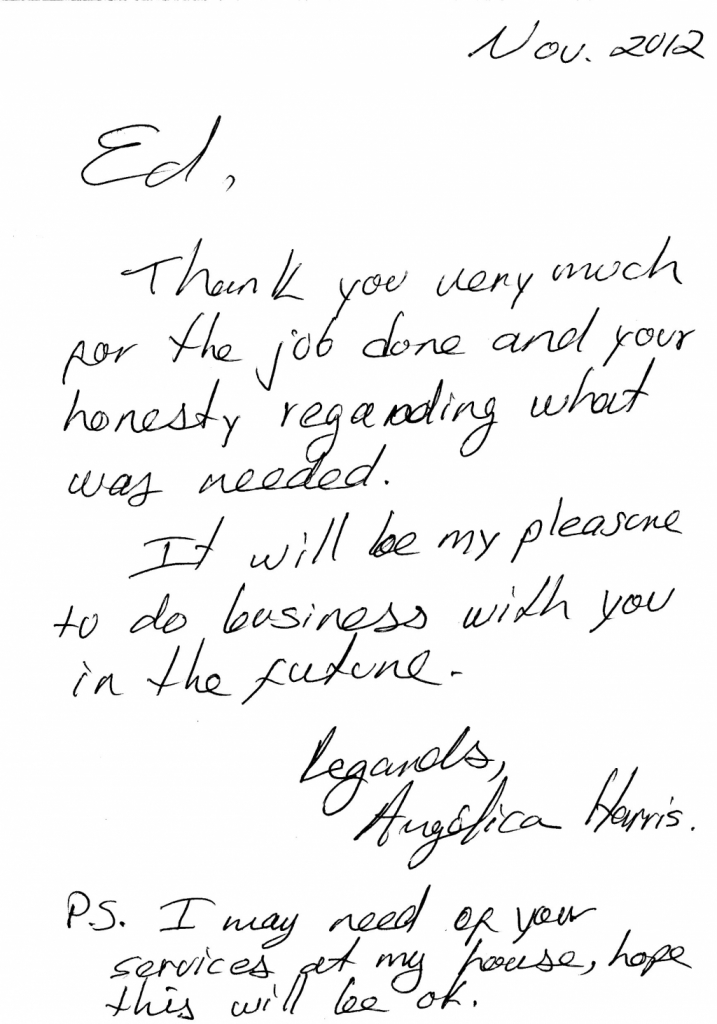 Nov. 2012
Ed,
Thank you very much
for the job done and your
honesty regarding what
was needed.
It will be my pleasure
to do business with you
in the future.
Regards,
Angélica Harris.
P.S. I may need of your
services at my house, hope
this will be ok.